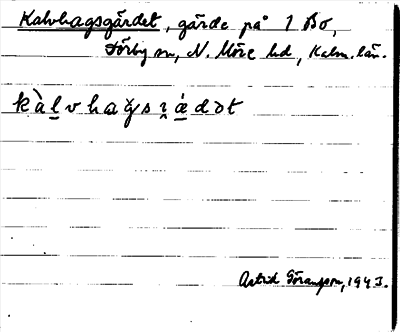 Kalvhagsgärdet, gärde på 1 Bo,
Förby sn, N. Möre hd, Kalm. län.
kàl̲vhaǧsɿ̯á̲dət
Astrid Göransson, 1943.